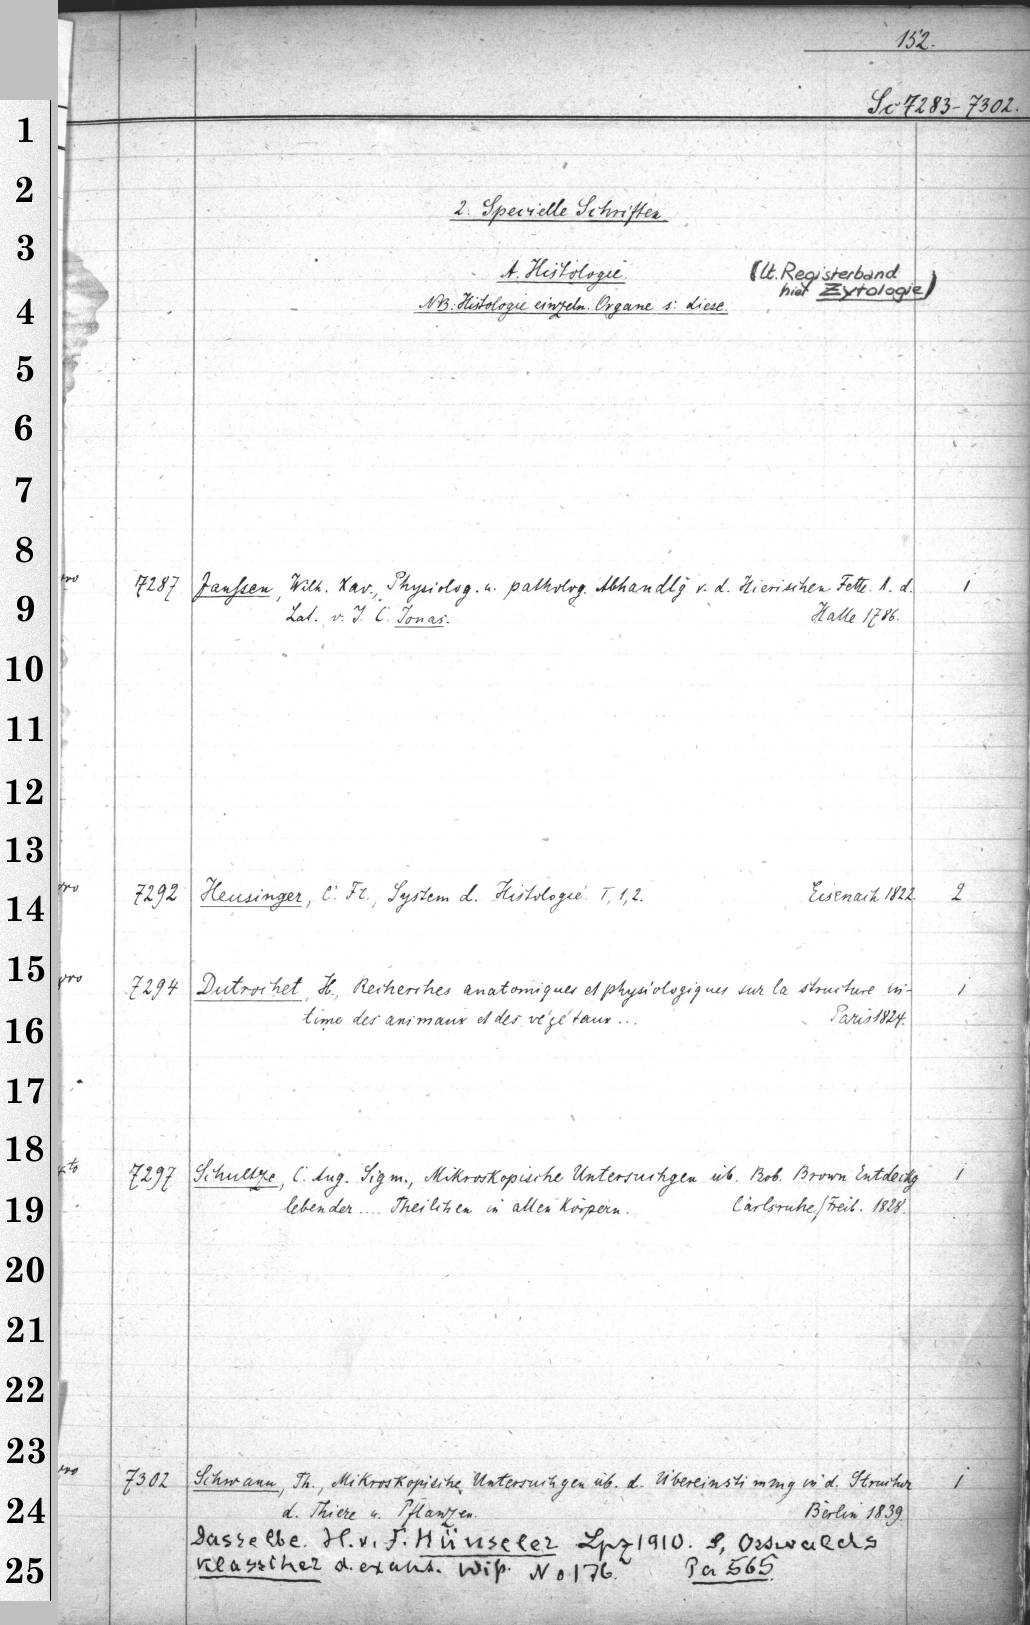 152.
Sc 7283-7302.
1
2
2. Specielle Schriften
3
A. Histologie.
(lt. Registerband
hier Zytologie)
4
NB. Histologie einzeln. Organe s. diese.
5
6
7
8
7287 Janssen, Wilh. Xav., Physiolog. u. patholog. Abhandlg v. d. thierischen Fette. A. d. 1
9
Lat. v. J. C. Jonas. Halle 1786.
10
11
12
13
7292 Heusinger, C. Fr., System d. Histologie. T. 1,2. Eisenach 1822. 2
14
15
7294 Dutrochet, H., Recherches anatomiques et physiologiques sur la structure in- 1
16
time des animaux et des végétaux ... Paris 1824.
17
18
7297 Schultze, C. Aug. Sigm., Mikroskopische Untersuchgen üb. Rob. Brown Entdeckg 1
19
lebender .... Theilchen in allen Körpern. Carlsruhe/Freib. 1828.
20
21
22
23
7302 Schwann, Th., Mikroskopische Untersuchgen üb. d. Übereinstimmg in d. Structur 1
24
d. Thiere u. Pflanzen. Berlin 1839.
Dasselbe. H. v. F. Hünseler Lpz 1910. S, Ostwalds
25
Klassiker d. exakt. Wiß. No 176. Pa 565.